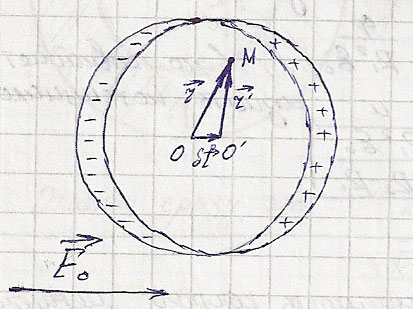 M
r⃗ r⃗'
O δl⃗ O'
E⃗₀